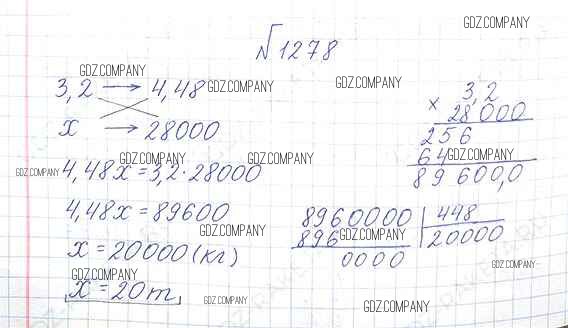 GDZ.COMPANY
№1278
GDZ.COMPANY
3,2 → 4,48 GDZ.COMPANY
GDZ.COMPANY
x → 28000
3,2
× 28000
256
64 GDZ.COMPANY
89600,0
GDZ.COMPANY GDZ.COMPANY
GDZ.COMPANY 4,48x = 3,2 · 28000
4,48x = 89600
GDZ.COMPANY
x = 20000 (кг)
8960000 | 448
896 GDZ.COMPANY 20000
0000
GDZ.COMPANY
GDZ.COMPANY
x = 20 т
GDZ.COMPANY
GDZ.COMPANY